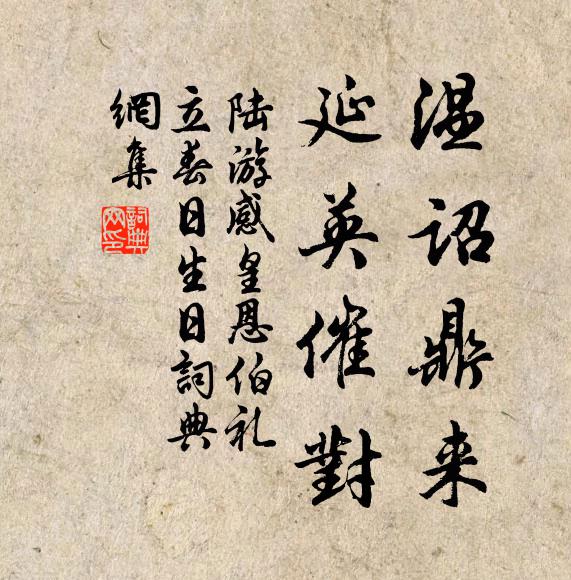 温诏鼎来
延英催對
陆游感皇恩伯礼
立春日生日詞典
網集
詞典網印